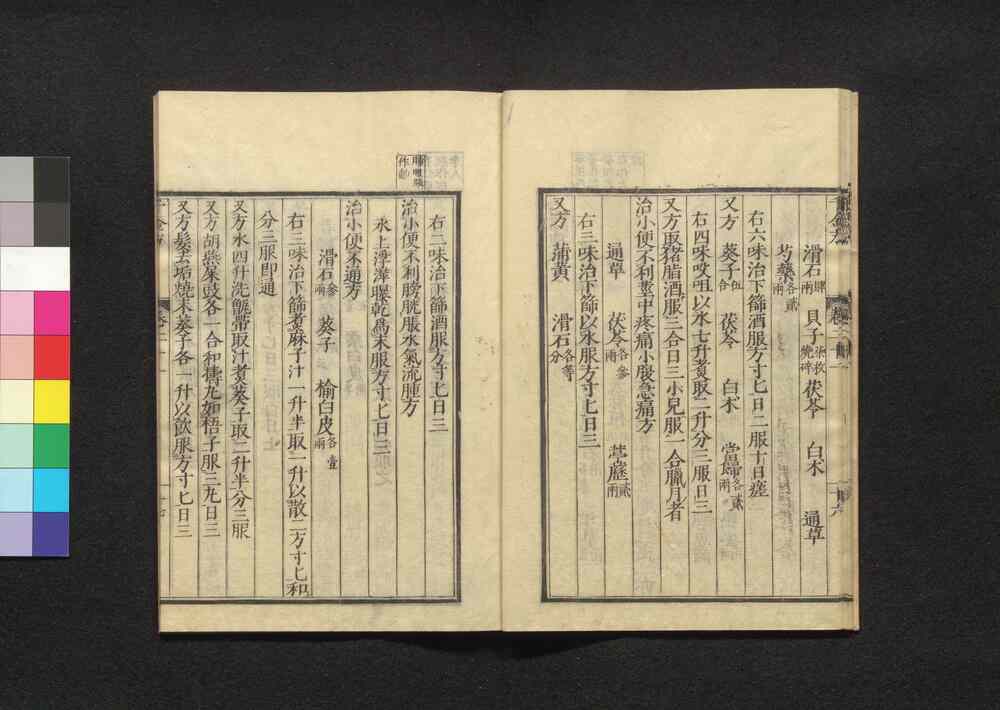 滑石肆兩 貝子柒枚燒碎 茯苓 白朮 通草
芍藥各貳兩
右六味治下篩酒服方寸匕日二服十日瘥
又方 葵子伍合 茯苓 白朮 當歸各貳兩
右四味㕮咀以水七升煮取二升分三服日三
又方取猪脂酒服三合日三小兒服一合臘月者
治小便不利莖中疼痛小腹急痛方
通草 茯苓各參兩 葶藶貳兩
右三味治下篩以水服方寸匕日三
又方 蒲黃 滑石各等分
右二味治下篩酒服方寸匕日三
治小便不利膀胱脹水氣流腫方
水上浮萍曝乾爲末服方寸匕日三
治小便不通方
滑石參兩 葵子 榆白皮各壹兩
右三味治下篩煮麻子汁一升半取一升以散二方寸匕和
分三服即通
又方水四升洗甑帶取汁煮葵子取二升半分三服
又方胡燕屎豉各一合和擣丸如梧子服三丸日三
又方髮去垢燒末葵子各一升以飲服方寸匕日三